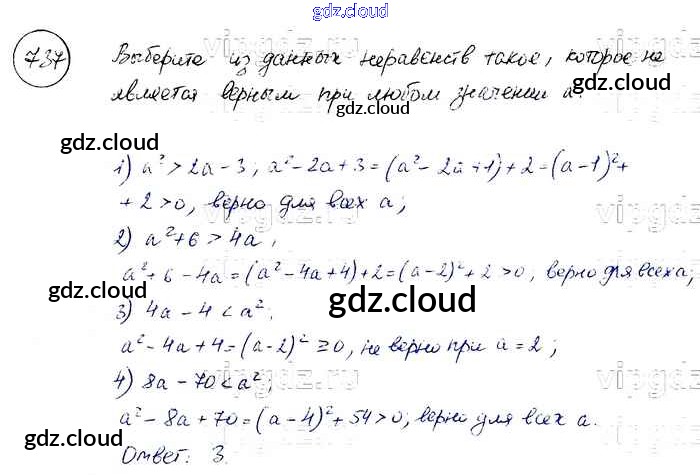 gdz.cloud
737 Выберите из данных неравенств такое, которое не
является верным при любом значении a:
gdz.cloud
gdz.cloud
vipgdz
1) a² > 2a - 3; a² - 2a + 3 = (a² - 2a + 1) + 2 = (a - 1)² +
gdz.cloud
+ 2 > 0, верно для всех a;
gdz.cloud
vipgdz
2) a² + 6 > 4a,
a² + 6 - 4a = (a² - 4a + 4) + 2 = (a - 2)² + 2 > 0, верно для всех a;
gdz.cloud
gdz.cloud
3) 4a - 4 < a²;
a² - 4a + 4 = (a - 2)² ≥ 0, не верно при a = 2;
4) 8a - 70 < a²;
vipgdz
a² - 8a + 70 = (a - 4)² + 54 > 0, верно для всех a.
gdz.cloud
gdz.cloud
Ответ: 3.
gdz.cloud